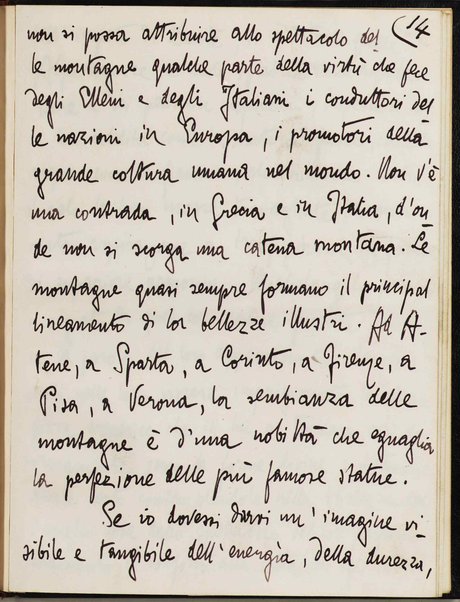 14
non si possa attribuire allo spettacolo del
le montagne qualche parte della virtù che fece
degli Elleni e degli Italiani i conduttori del
le nazioni in Europa, i promotori della
grande coltura umana nel mondo. Non v'è
una contrada, in Grecia e in Italia, d'on
de non si scorga una catena montana. Le
montagne quasi sempre formano il principal
lineamento di lor bellezze illustri. Ad A-
tene, a Sparta, a Corinto, a Firenze, a
Pisa, a Verona, la sembianza delle
montagne è d'una nobiltà che eguaglia
la perfezione delle più famose statue.
Se io dovessi darvi un'imagine vi-
sibile e tangibile dell'energia, della durezza,